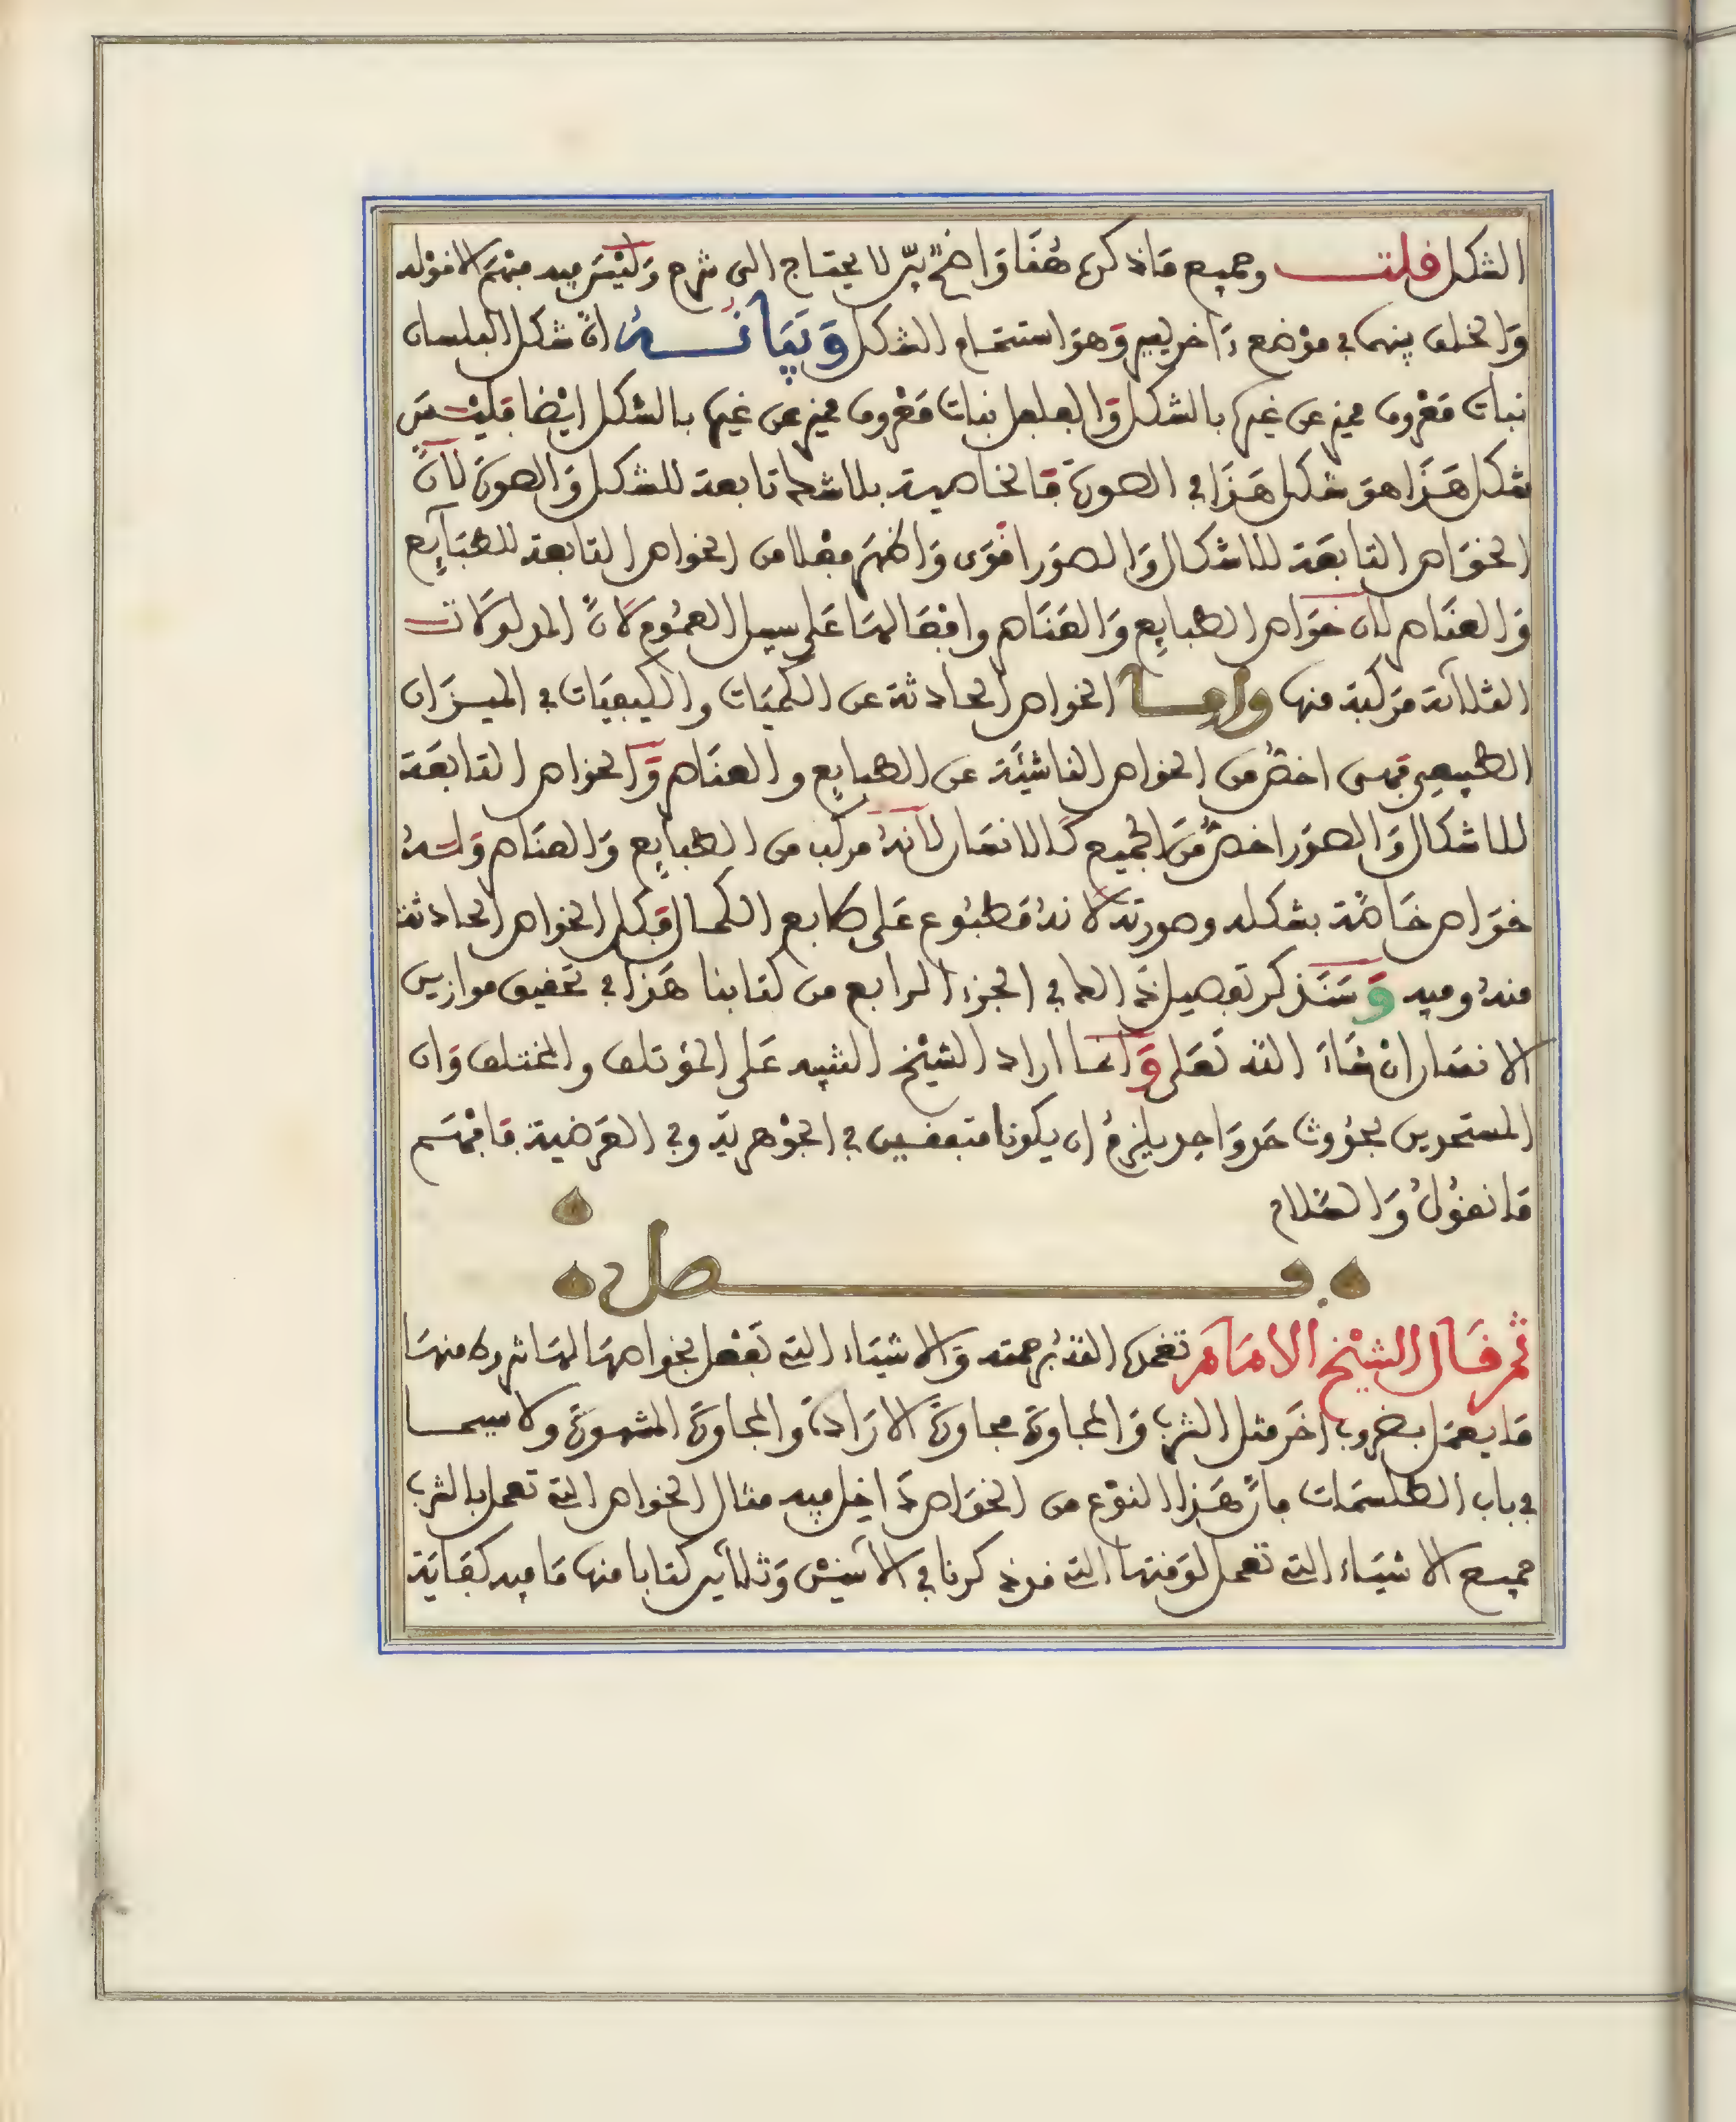 الشكل قلت وجميع ما ذكره هنا واضح بيّن لا يحتاج الى شرح وليس فيه مبهم الا قوله
والخلف بينهما في موضع داخر يفهم وهو استتمام الشكل وبيانه انّ شكل البلسان
نبات معروف مميز عن غيره بالشكل والفلفل نبات معروف مميز عن غيره بالشكل ايضا فليس
شكل هذا هو شكل هذا في الصورة فالخاصية بلا شك تابعة للشكل والصورة لأنّ
الخواص التابعة للاشكال والصور اقوى واظهر فعلا من الخواص التابعة للطبائع
والعناصر لان خواص الطبائع والعناصر وافعالها على سبيل العموم لانّ المدلولات
الثلاثة مركبة منها وامّا الخواص الحادثة عن الكميات والكيفيات في الميزان
الطبيعي فهى اخصّ من الخواص الناشئة عن الطبائع والعناصر والخواص التابعة
للاشكال والصور اخصّ من الجميع كالانسان لأنه مركب من الطبائع والعناصر وله
خواص خاصّة بشكله وصورته لانه مطبوع على طابع الكمال فكل الخواص الحادثة
منه وفيه وسنذكر تفصيل ذالك في الجزء الرابع من كتابنا هذا في تحقيق موازين
الانسان ان شاء الله تعلى وانما اراد الشيخ التنبيه على المؤتلف والمختلف وان
المتحدين بحدوث حد واحد يلزم ان يكونا متفقين في الجوهرية وفي العرضية فافهم
ما نقول والسلام
فصل
ثم قال الشيخ الامام تغمده الله برحمته والاشياء التي تفعل بخواصها لها شروط منها
ما يعمل بضروب اخر مثل الشرب والمجاورة مجاورة الارادة والمجاورة المشهورة ولا سيما
في باب الطلسمات فانّ هذا النوع من الخواص داخل فيه مثال الخواص التي تعمل بالشرب
جميع الاشياء التي تعمل لوقتها التي قد ذكرنا في الاثنين وثلاثين كتابا منها ما فيه كفاية